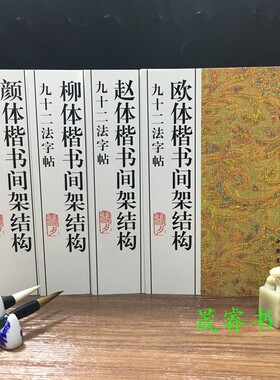 欧体楷书间架结构
九十二法字帖
赵体楷书间架结构
九十二法字帖
柳体楷书间架结构
九十二法字帖
颜体楷书间架结构
九十二法字帖
晟睿书